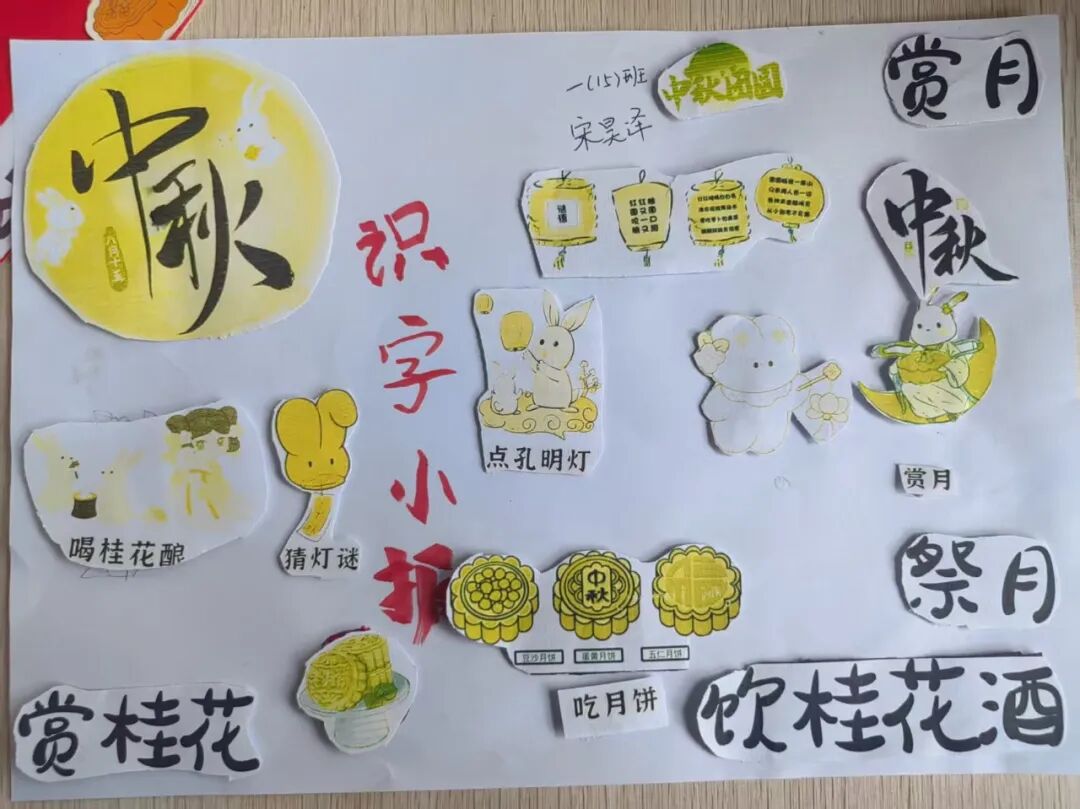 中秋
八月十五
一(15)班
宋昊泽
中秋团圆
赏月
谜语
红红椒
圆又圆
吃一口
中秋
识字小报
点孔明灯
赏月
喝桂花酿
猜灯谜
祭月
中秋
豆沙月饼
蛋黄月饼
五仁月饼
吃月饼
赏桂花
饮桂花酒